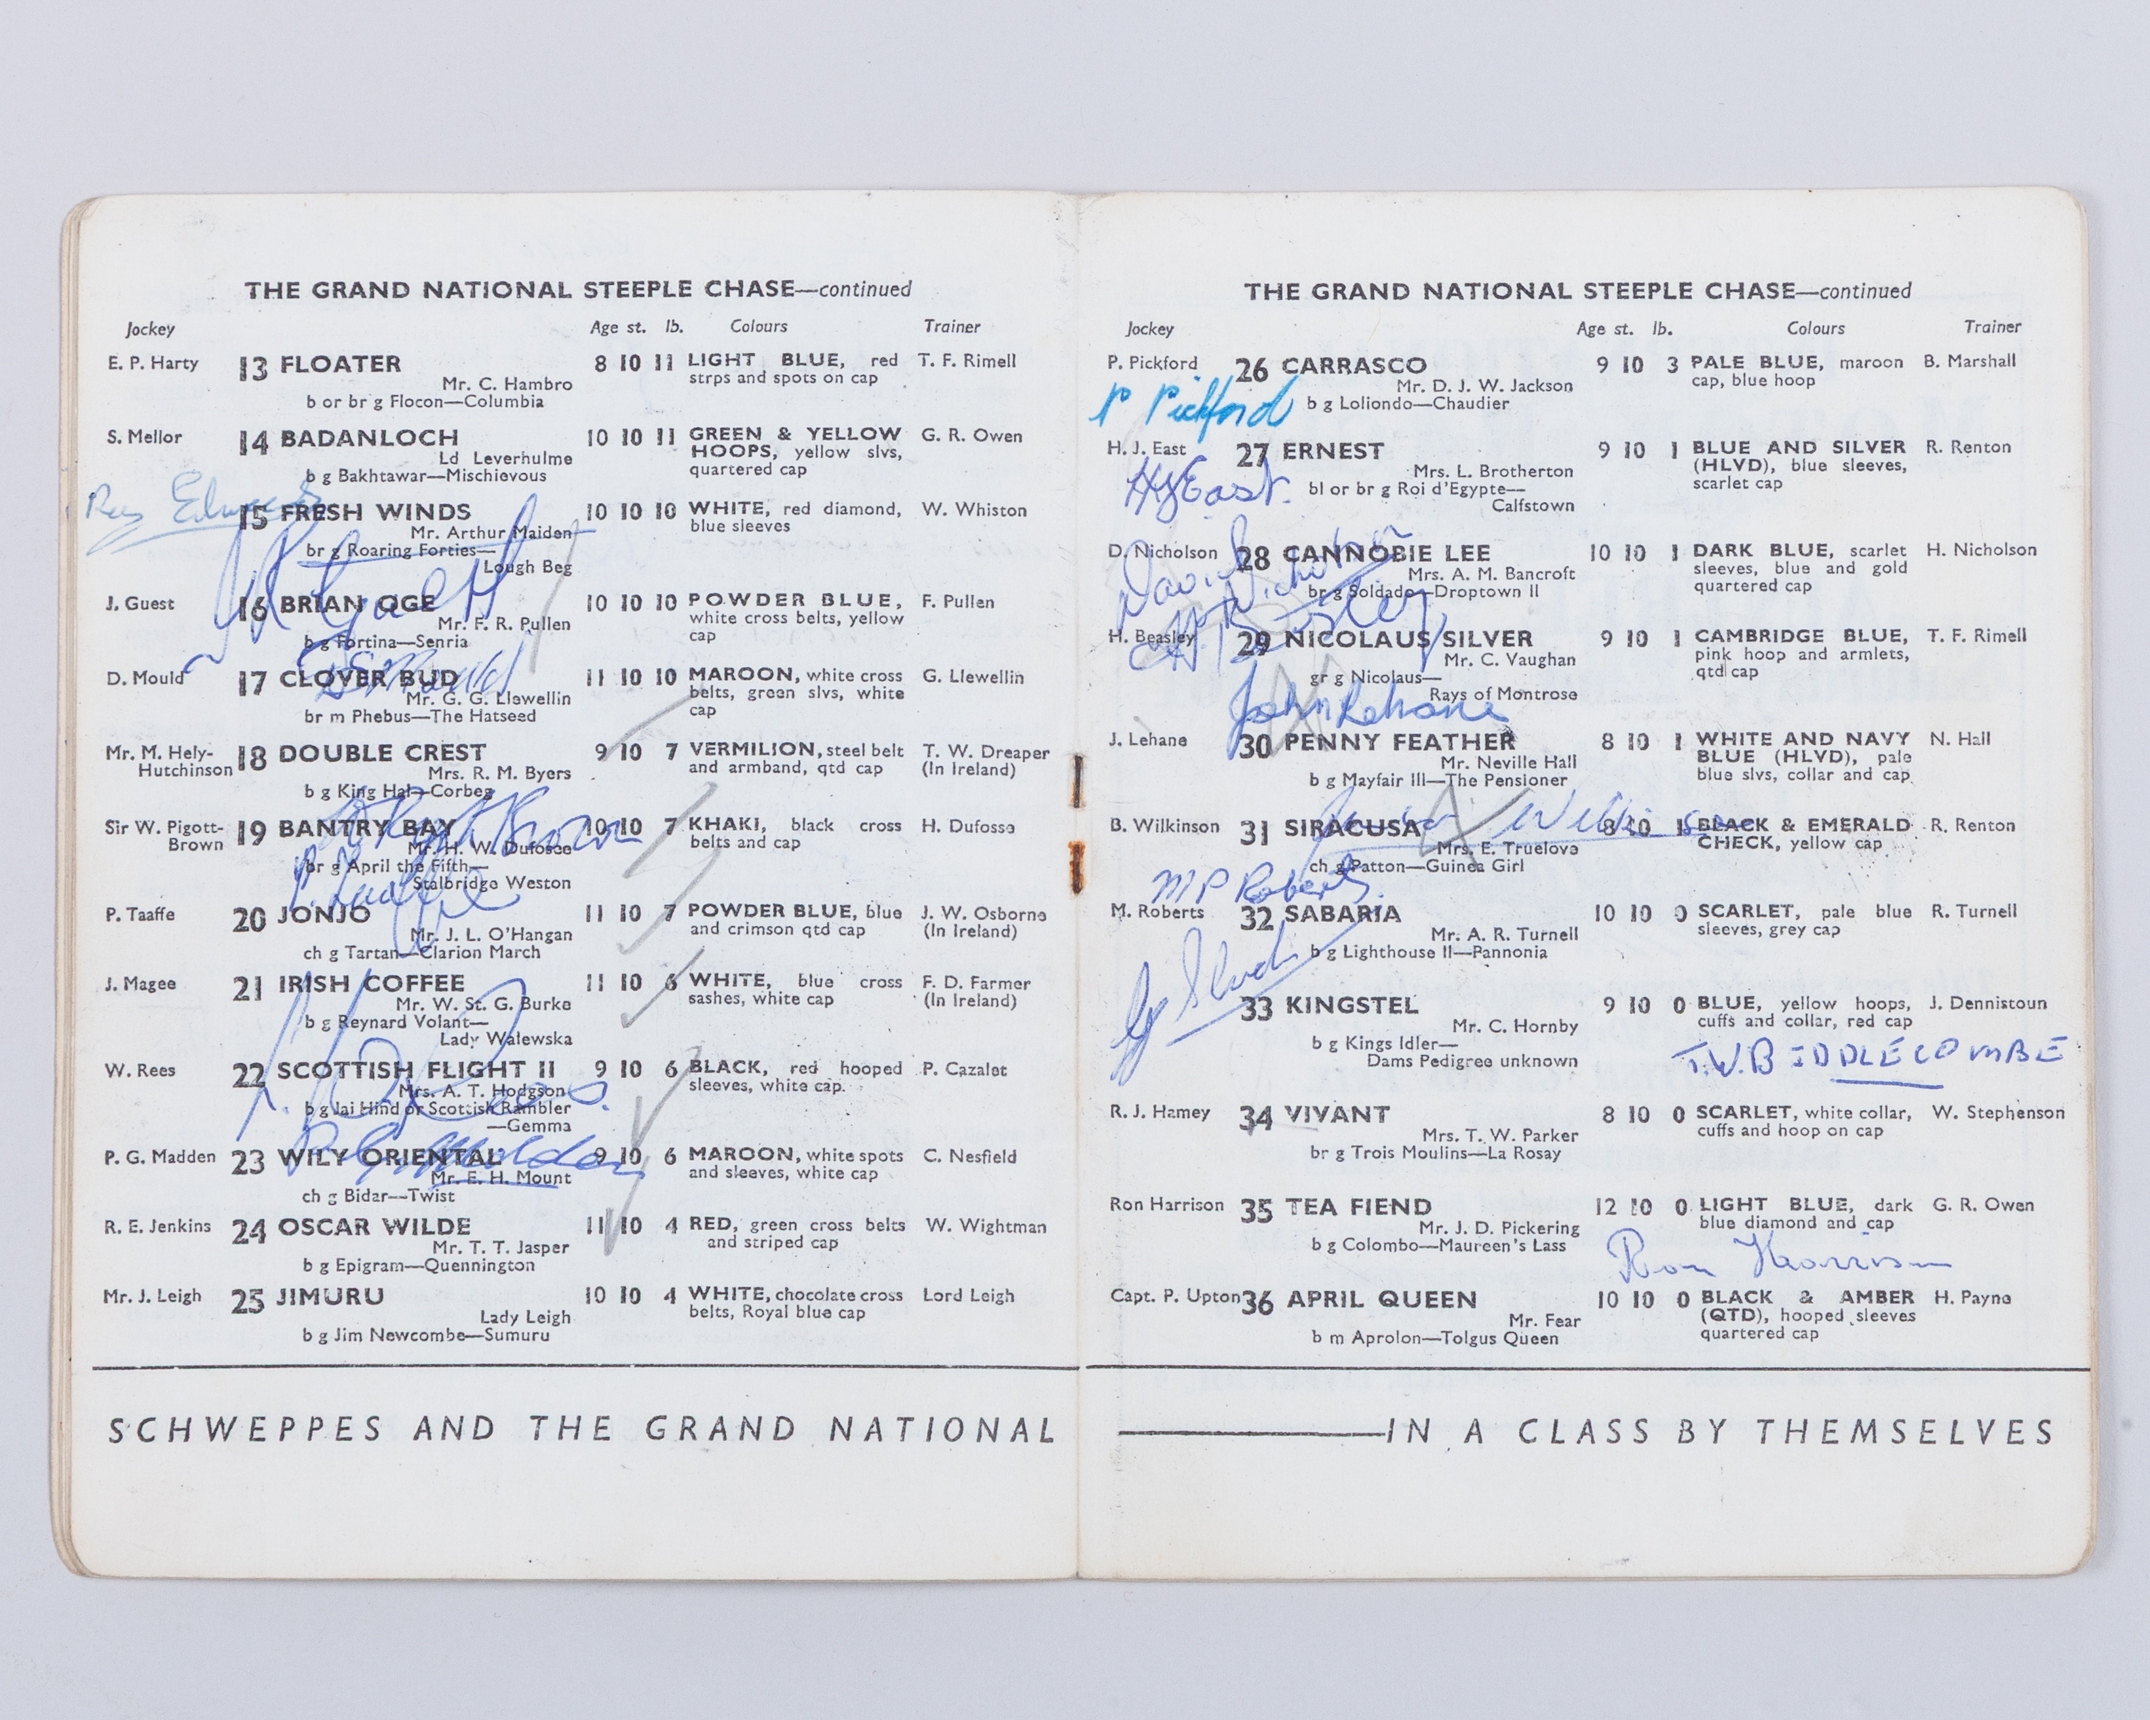 THE GRAND NATIONAL STEEPLE CHASE—continued
Jockey Age st. lb. Colours Trainer
E. P. Harty 13 FLOATER 8 10 11 LIGHT BLUE, red T. F. Rimell
Mr. C. Hambro strps and spots on cap
b or br g Flocon—Columbia
S. Mellor 14 BADANLOCH 10 10 11 GREEN & YELLOW G. R. Owen
Ld Leverhulme HOOPS, yellow slvs,
b g Bakhtawar—Mischievous quartered cap
15 FRESH WINDS 10 10 10 WHITE, red diamond, W. Whiston
Mr. Arthur Maiden blue sleeves
br g Roaring Forties—
Lough Beg
J. Guest 16 BRIAN OGE 10 10 10 POWDER BLUE, F. Pullen
Mr. F. R. Pullen white cross belts, yellow
b g Fortina—Senria cap
D. Mould 17 CLOVER BUD 11 10 10 MAROON, white cross G. Llewellin
Mr. G. G. Llewellin belts, green slvs, white
br m Phebus—The Hatseed cap
Mr. M. Hely- 18 DOUBLE CREST 9 10 7 VERMILION, steel belt T. W. Dreaper
Hutchinson Mrs. R. M. Byers and armband, qtd cap (In Ireland)
b g King Hal—Corbeg
Sir W. Pigott- 19 BANTRY BAY 10 10 7 KHAKI, black cross H. Dufosse
Brown Mr. H. W. Dufosee belts and cap
br g April the Fifth—
P. Taaffe
Stalbridge Weston
P. Taaffe 20 JONJO 11 10 7 POWDER BLUE, blue J. W. Osborne
Mr. J. L. O'Hangan and crimson qtd cap (In Ireland)
ch g Tartan—Clarion March
J. Magee 21 IRISH COFFEE 11 10 6 WHITE, blue cross F. D. Farmer
Mr. W. St. G. Burke sashes, white cap (In Ireland)
b g Reynard Volant—
Lady Walewska
W. Rees 22 SCOTTISH FLIGHT II 9 10 6 BLACK, red hooped P. Cazalet
Mrs. A. T. Hodgson sleeves, white cap.
b g Jai Hind or Scottish Rambler
—Gemma
P. G. Madden 23 WILY ORIENTAL 9 10 6 MAROON, white spots C. Nesfield
Mr. E. H. Mount and sleeves, white cap
ch g Bidar—Twist
R. E. Jenkins 24 OSCAR WILDE 11 10 4 RED, green cross belts W. Wightman
Mr. T. T. Jasper and striped cap
b g Epigram—Quennington
Mr. J. Leigh 25 JIMURU 10 10 4 WHITE, chocolate cross Lord Leigh
Lady Leigh belts, Royal blue cap
b g Jim Newcombe—Sumuru
SCHWEPPES AND THE GRAND NATIONAL
THE GRAND NATIONAL STEEPLE CHASE—continued
Jockey Age st. lb. Colours Trainer
P. Pickford 26 CARRASCO 9 10 3 PALE BLUE, maroon B. Marshall
Mr. D. J. W. Jackson cap, blue hoop
P Pickford b g Loliondo—Chaudier
H. J. East 27 ERNEST 9 10 1 BLUE AND SILVER R. Renton
Mrs. L. Brotherton (HLVD), blue sleeves,
HJ East. bl or br g Roi d'Egypte— scarlet cap
Calfstown
D. Nicholson 28 CANNOBIE LEE 10 10 1 DARK BLUE, scarlet H. Nicholson
David Nicholson Mrs. A. M. Bancroft sleeves, blue and gold
br g Soldado—Droptown II quartered cap
H. Beasley
H. Beasley 29 NICOLAUS SILVER 9 10 1 CAMBRIDGE BLUE, T. F. Rimell
Mr. C. Vaughan pink hoop and armlets,
gr g Nicolaus— qtd cap
Rays of Montrose
John Lehane
J. Lehane 30 PENNY FEATHER 8 10 1 WHITE AND NAVY N. Hall
Mr. Neville Hall BLUE (HLVD), pale
b g Mayfair III—The Pensioner blue slvs, collar and cap
B. Wilkinson 31 SIRACUSA 8 10 1 BLACK & EMERALD R. Renton
Mrs. E. Truelove CHECK, yellow cap
ch g Patton—Guinea Girl
M P Roberts
M. Roberts 32 SABARIA 10 10 0 SCARLET, pale blue R. Turnell
Mr. A. R. Turnell sleeves, grey cap
b g Lighthouse II—Pannonia
33 KINGSTEL 9 10 0 BLUE, yellow hoops, J. Dennistoun
Mr. C. Hornby cuffs and collar, red cap
b g Kings Idler—
Dams Pedigree unknown
T.W. BIDDLECOMBE
R. J. Hamey 34 VIVANT 8 10 0 SCARLET, white collar, W. Stephenson
Mrs. T. W. Parker cuffs and hoop on cap
br g Trois Moulins—La Rosay
Ron Harrison 35 TEA FIEND 12 10 0 LIGHT BLUE, dark G. R. Owen
Mr. J. D. Pickering blue diamond and cap
b g Colombo—Maureen's Lass
Ron Harrison
Capt. P. Upton 36 APRIL QUEEN 10 10 0 BLACK & AMBER H. Payne
Mr. Fear (QTD), hooped sleeves
b m Aprolon—Tolgus Queen quartered cap
—IN A CLASS BY THEMSELVES